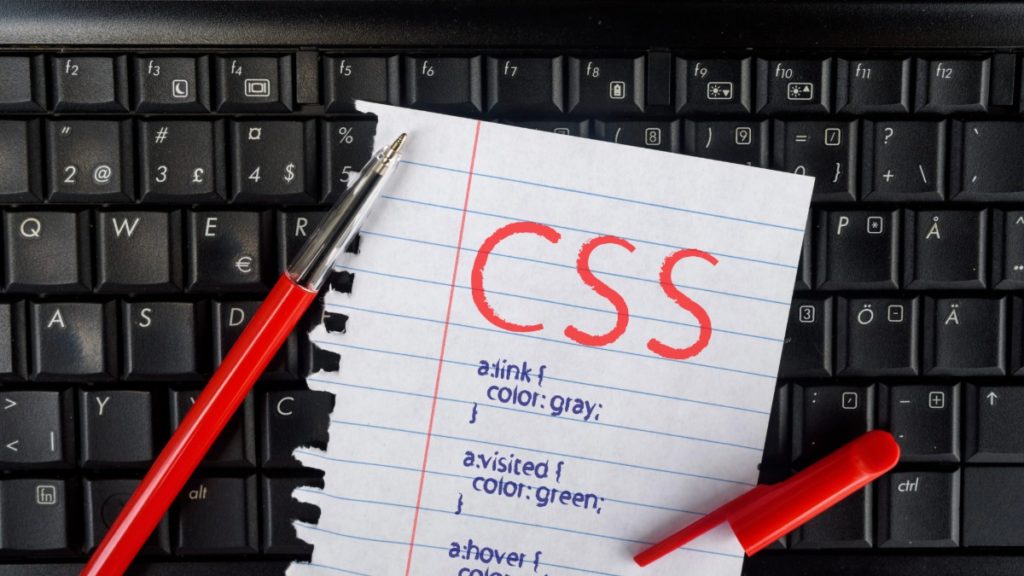 f2 f3 f4 f5 f6 f7 f8 f9 f10 f11 f12
" # ¤ % ( 8 ) 9 = 7 ?
2 @ 3 £ 4 $ 5 } + \
Q W E R P * Å
€
A S D 3 Ö - Ä
> Y C : . _ +
< | -
fn alt ctrl
CSS
a:link {
color: gray;
}
a:visited {
color: green;
}
a:hover {
color: